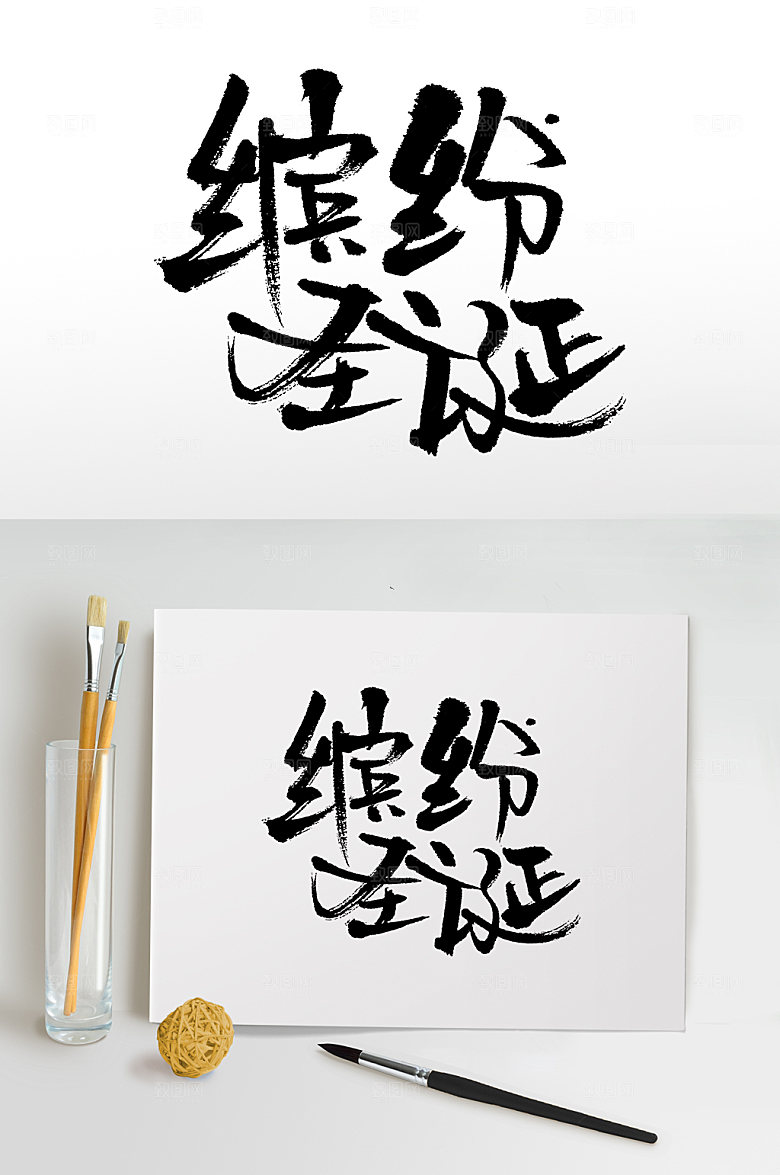 缤纷
圣诞
缤纷
圣诞